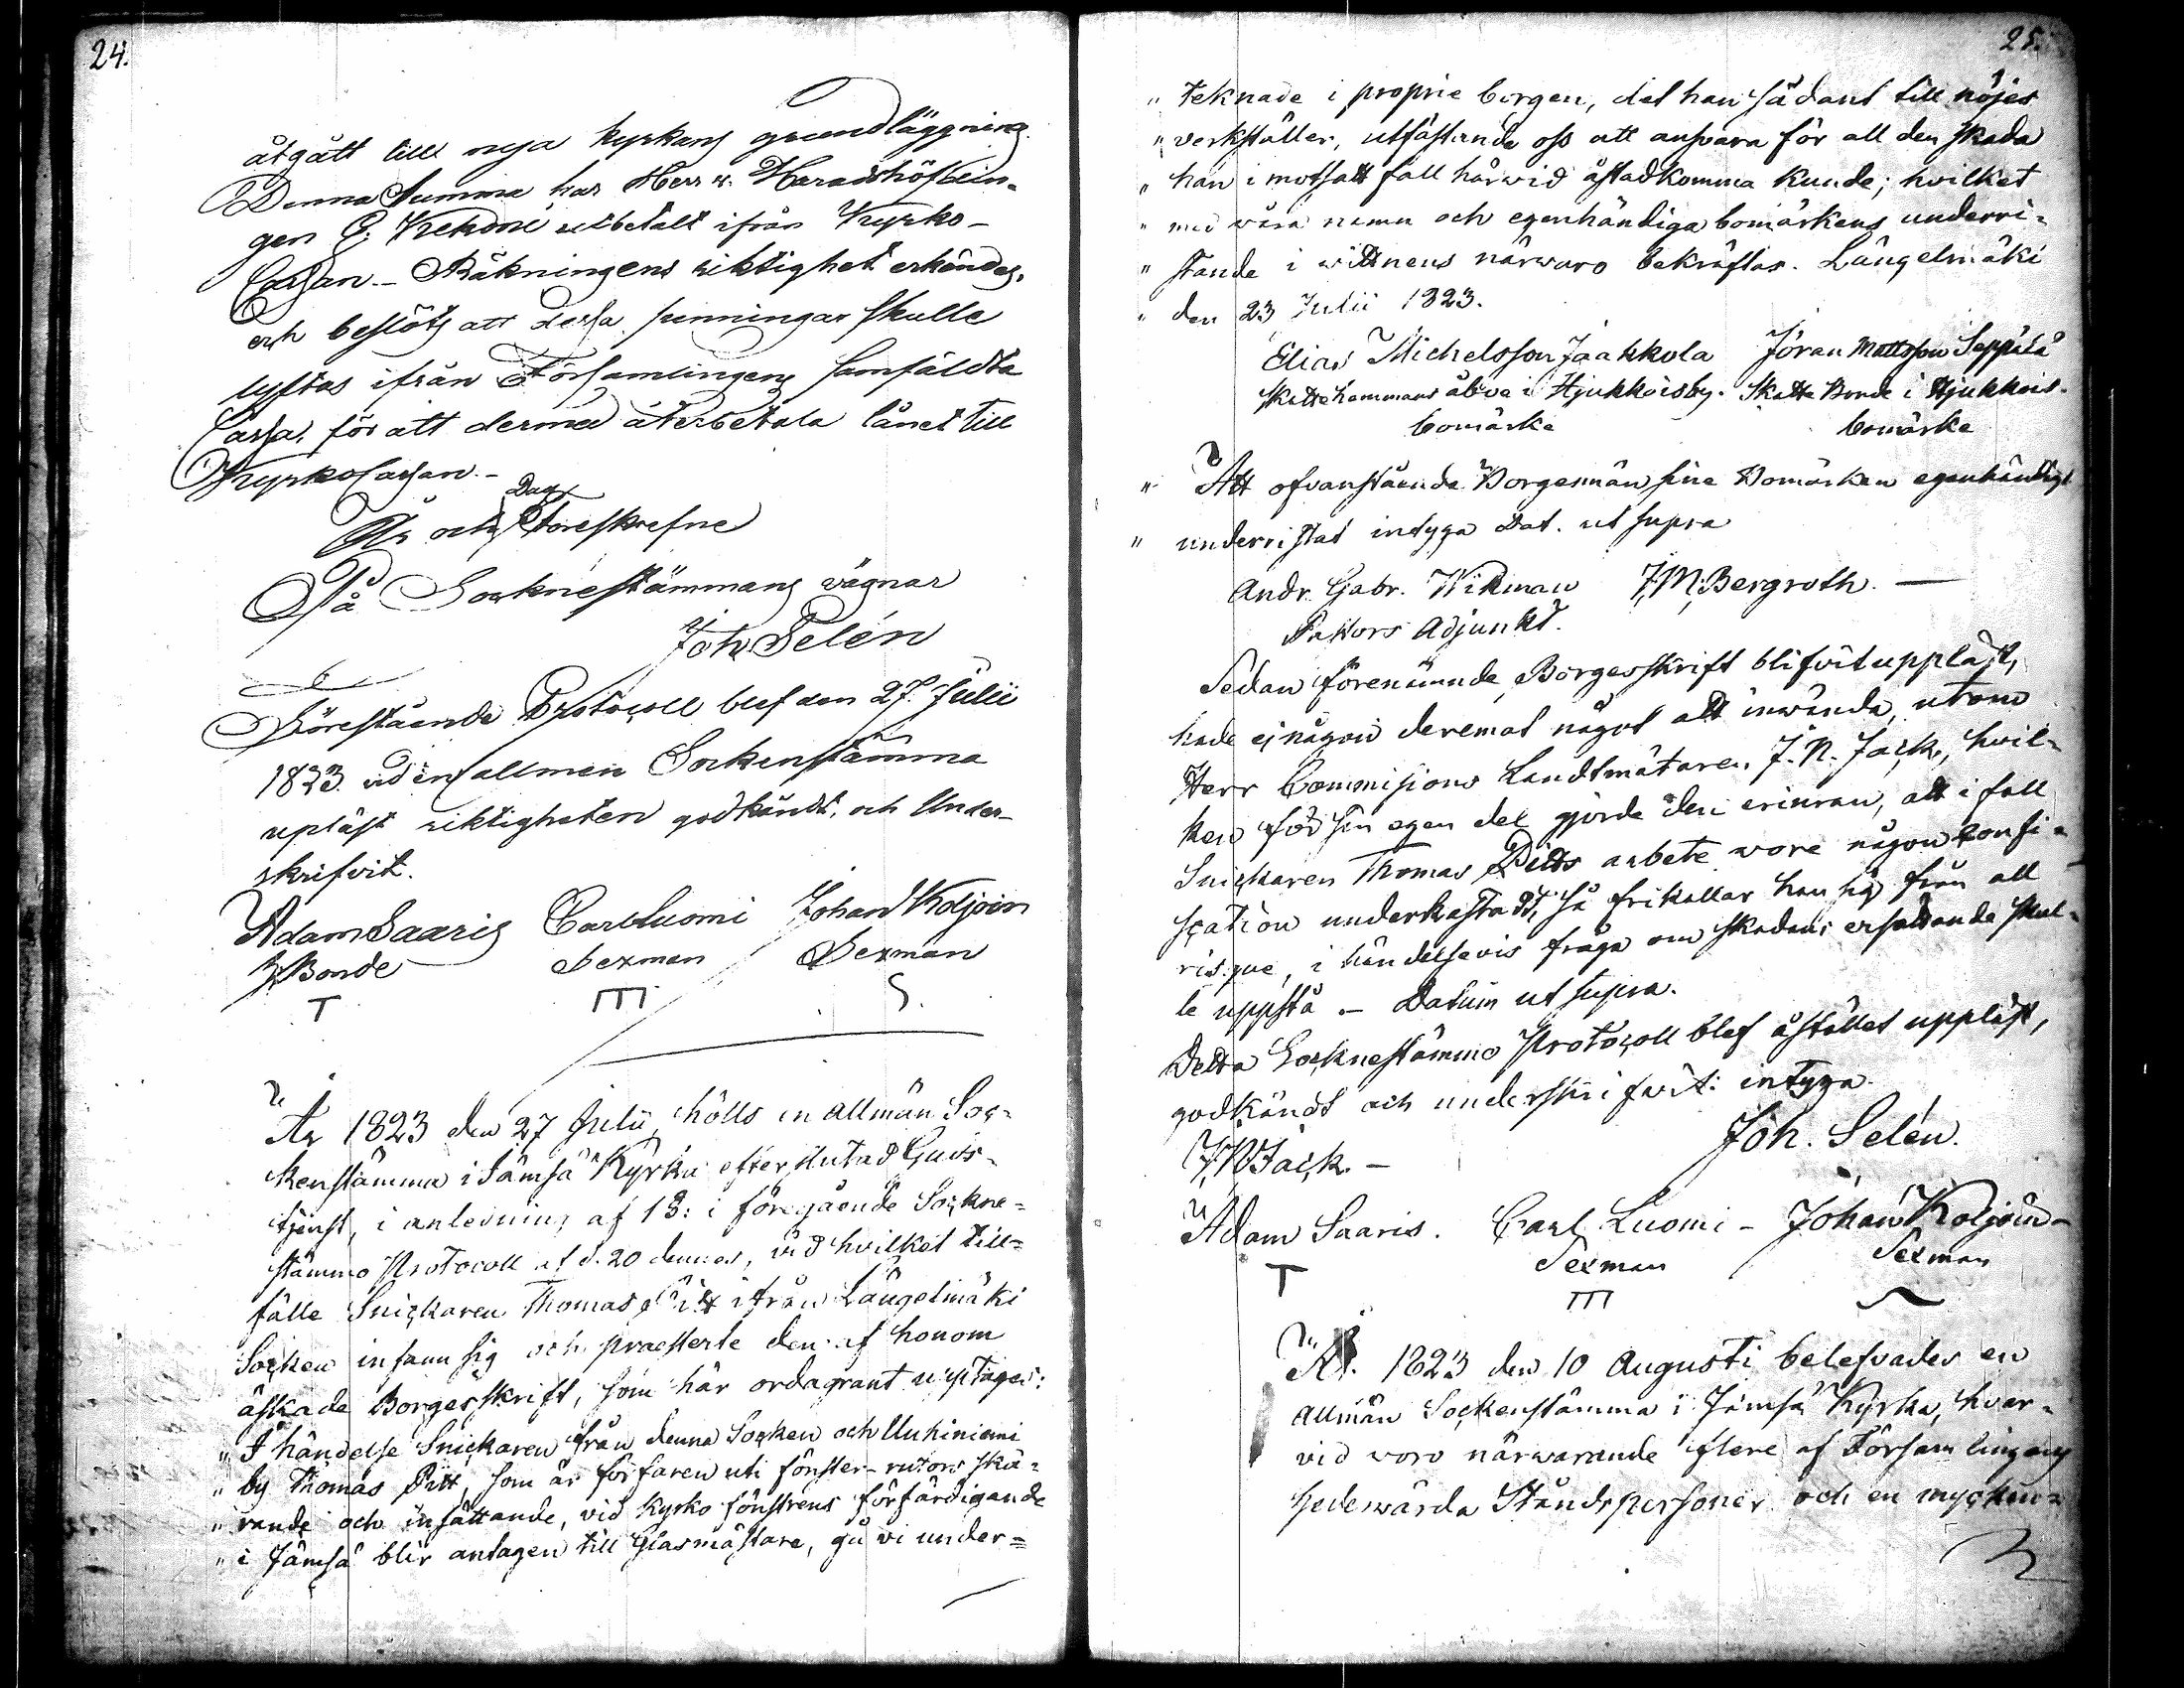 24.
åtgått till nya kyrkans grundläggning.
Denna Summa har Herr v. Häradshöfdin-
gen utbetalt ifrån Kyrko-
Cassan. - Räkningens riktighet erkändes,
och beslöts att dessa penningar skulle
lyftas ifrån Församlingens samfäldta
Cassa, för att dermed återbetala lånet till
KyrkoCassan. -
Dag
År och Föreskrefne
På Socknestämmans vägnar
Joh. Selén
Förestående Protocoll blef den 27. Julii
1823. vid en allmän Sockenstämma
upläst riktigheten godkändt, och Under-
skrifvit.
Adam Saaris Carl Luomi Johan Koljoin
Bonde Sexman Sexman
År 1823 den 27 Julii, hölls en allmän Soc-
kenstämma i Jämsä Kyrka efter slutad Guds-
tjenst, i anledning af 13: i föregående Sockne-
stämmo Protocoll af d. 20 dennes, vid hvilket till-
fälle Snickaren Thomas Pitt ifrån Längelmäki
Socken infann sig och praesterte den af honom
äskade Borgesskrift, som här ordagrant upptages:
" I händelse Snickaren från denna Socken och Uuhiniemi
" by Thomas Pitt, som är förfaren uti fönster-rutors skä-
" rande och insättande, vid kyrko fönstrens förfärdigande
" i Jämsä blir antagen till Glasmästare, gå vi under-
25.
" teknade i proprie borgen, det han sådant till nöjes
" verkställer, utfästande oss att ansvara för all den skada
" han i motsatt fall härwid åstadkomma kunde; hvilket
" med våra namn och egenhändiga bomärkens underri-
" stande i wittnens närwaro bekräftas. Längelmäki
" den 23 Julii 1823.
Elias Michelsson Jaakkola Jöran Mattsson Seppälä
Skattehemmans åboe i Hjukkois by. Skatte Bonde i Hjukkois.
bomärke bomärke
" Att ofvanstående Borgesmän sine Bomärken egenhändigt
" underristat intyga Dat. ut supra
Andr. Gabr. Wikman J. M. Bergroth. -
Pastors Adjunkt.
Sedan förenämnde Borgesskrift blifvit uppläst,
hade ej någon deremot något att inwända, utom
Herr Commissions Landtmätaren J. N. Jack, hvil-
ken för sin egen del gjorde den erinran, att i fall
Snickaren Thomas Pitts arbete wore någon confi-
scation underkastadt, så frikallar han sig från all
risque, i händelsevis fråga om skadans ersättande skul-
le uppstå. - Datum ut supra.
Detta Socknestämmo Protocoll blef å stället uppläst,
godkändt och underskrifwit: intyga
Joh. Selén.
J. N. Jack. -
Adam Saaris. Carl Luomi - Johan Koljoin -
Sexman Sexman
År 1823 den 10 Augusti belefvades en
allmän Sockenstämma i Jämsä Kyrka, hvar-
vid woro närwarande flere af Församlingens
hederwärda Ståndspersoner och en mycken-